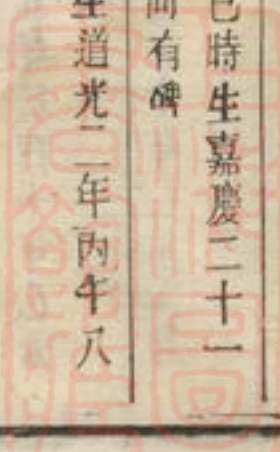 巳時生嘉慶二十一
向有碑
生道光二年丙午八